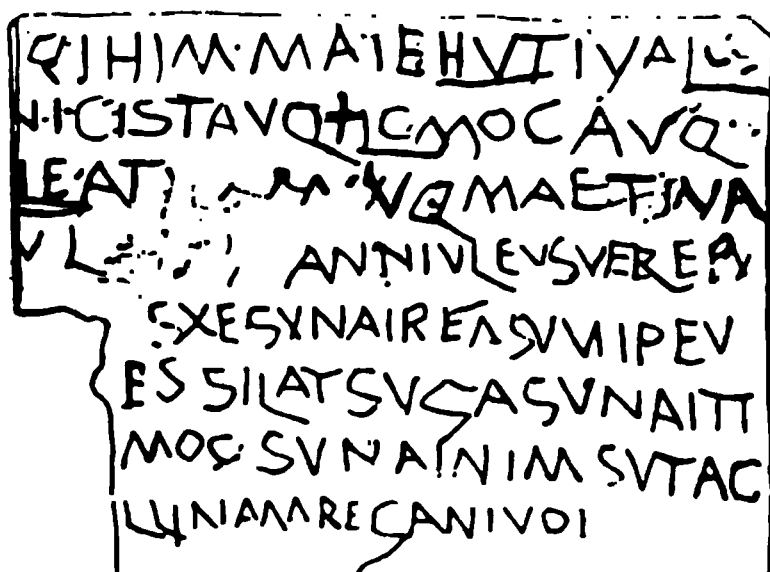 QIHIM·MAIEHVTIVAL
N·ICISTAVQHCMOCAVQ
LEAT NQMAETINA
VL ANNIVLEVSVEREPV
SXESVNAIREASVNIPEV
ESSILATSVGASVNAITI
MOC SVNAINIMSVTAC
LLINAMREGANIVOI